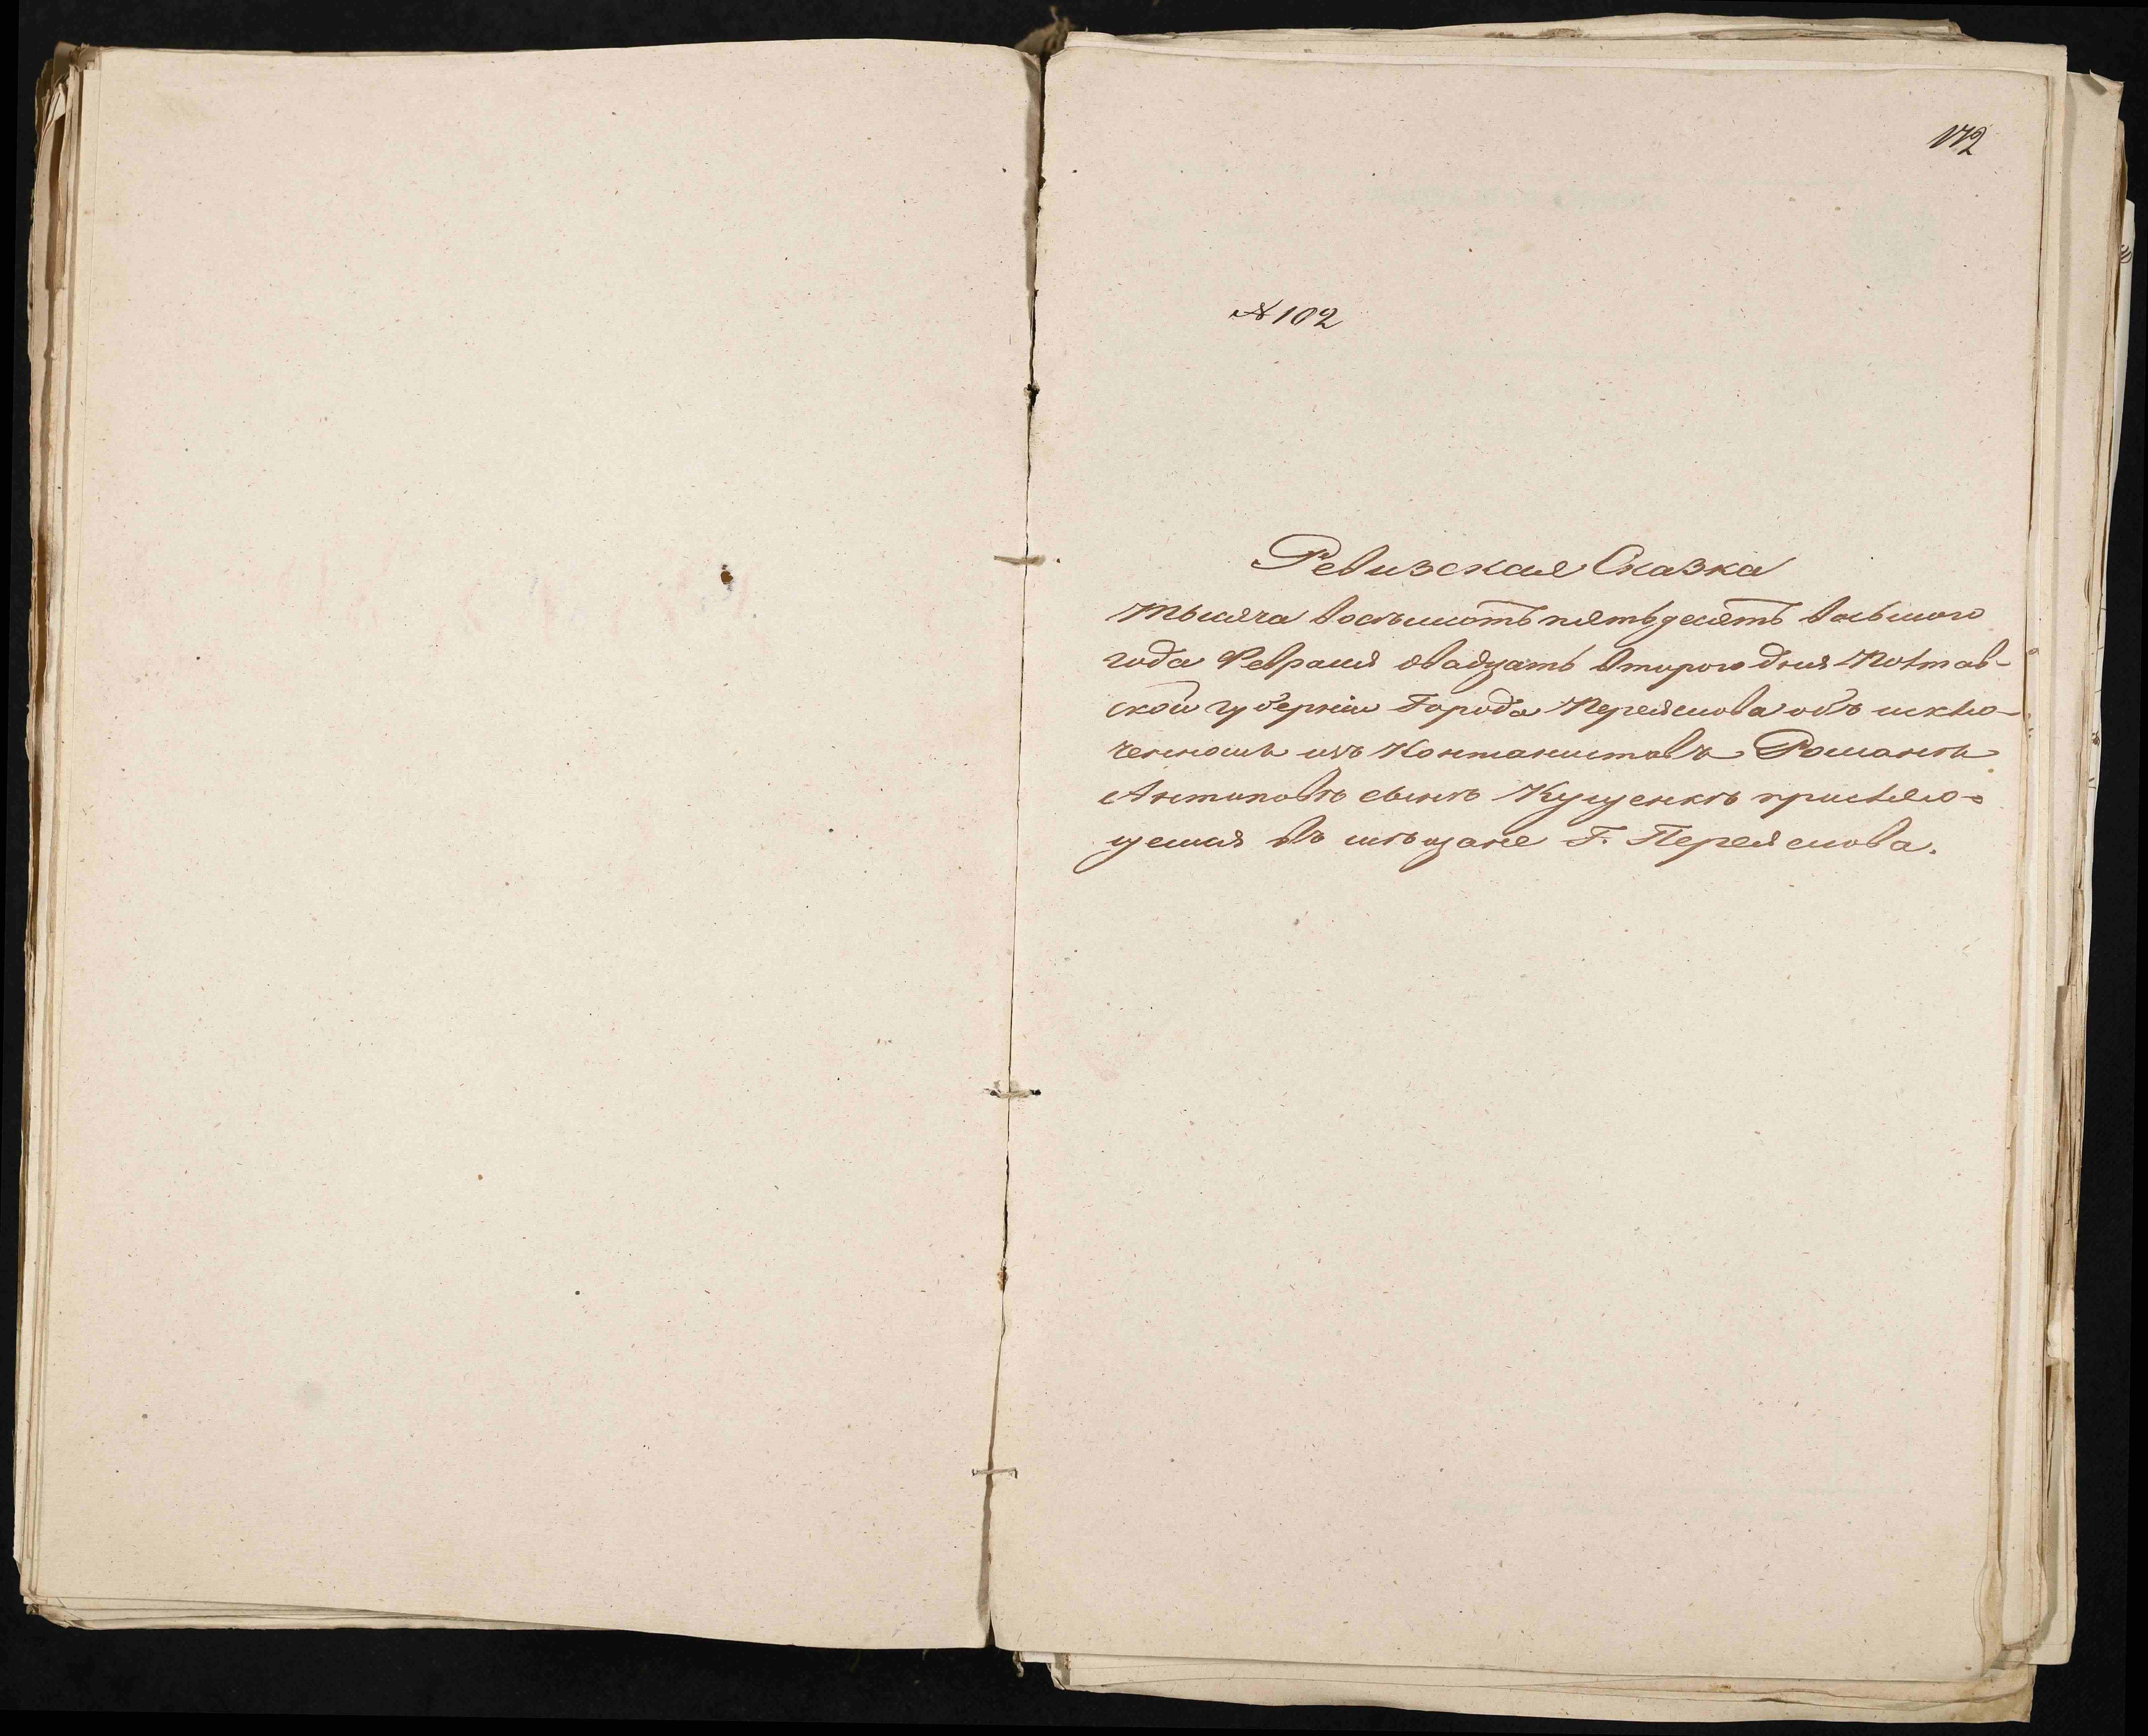 172
№ 102
Ревизская Сказка
тысяча восемьсотъ пятьдесятъ восьмаго
года Февраля двадцать втораго дня Полтав-
ской губерніи Города Переяслова объ исклю-
ченномъ изъ Контонистовъ Романѣ
Антоновѣ сынѣ Куценкѣ
въ мѣщане Г. Переяслова.